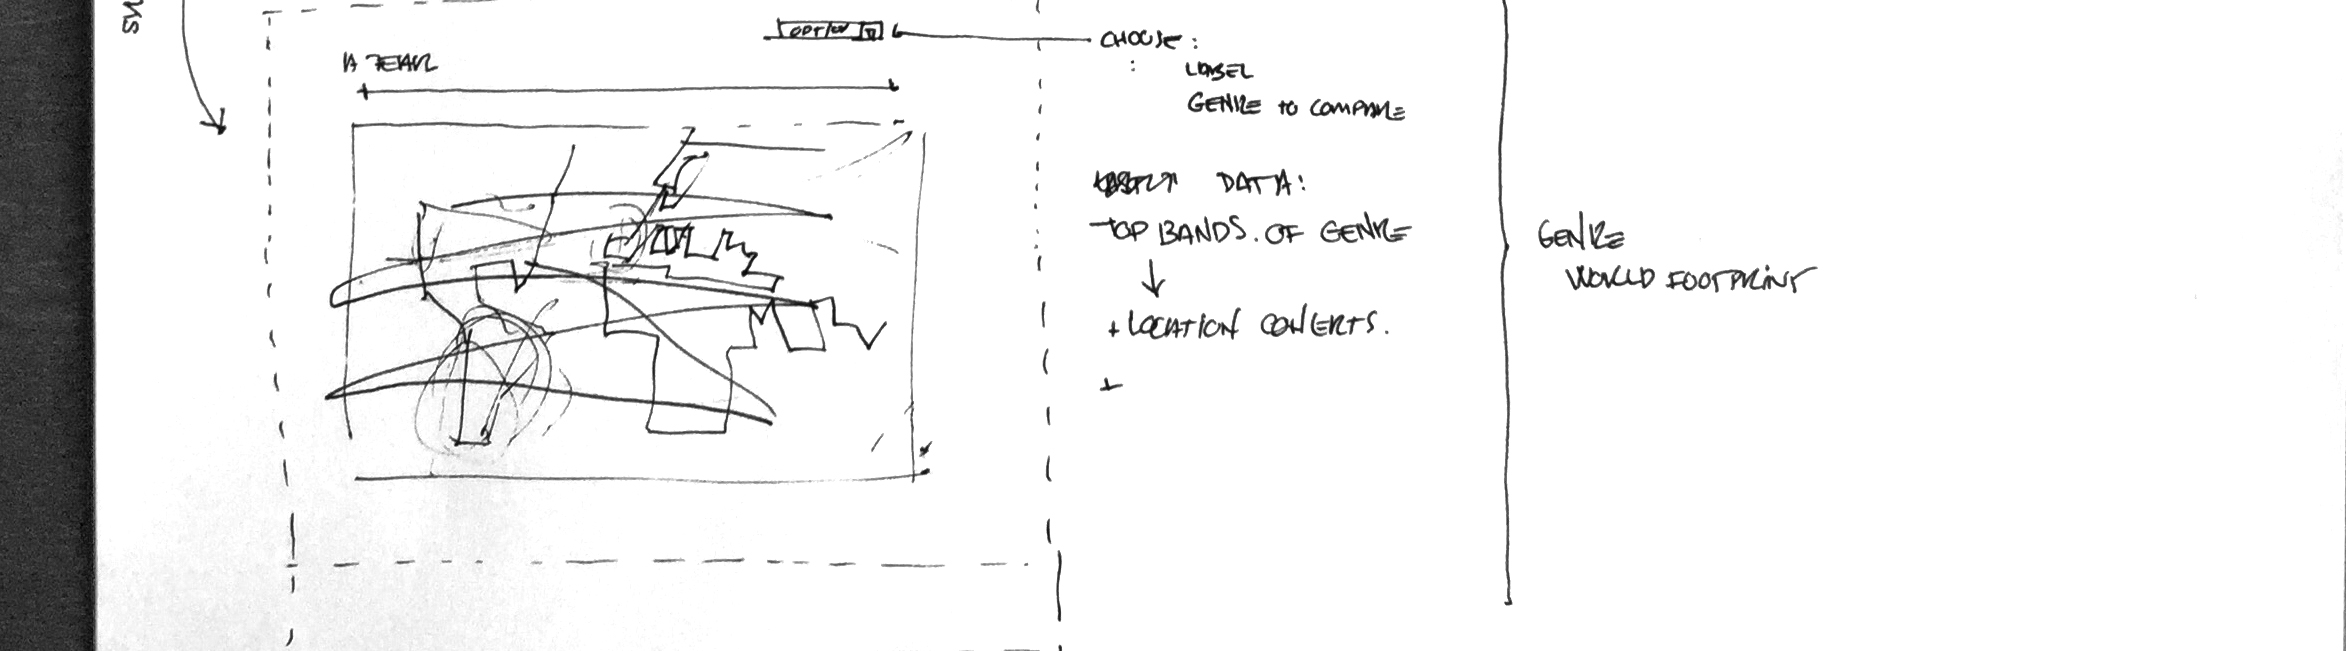 OPTION
CHOOSE:
: LABEL
GENRE TO COMPARE
DATA:
TOP BANDS. OF GENRE
+ LOCATION CONCERTS.
+
GENRE
WORLD FOOTPRINT